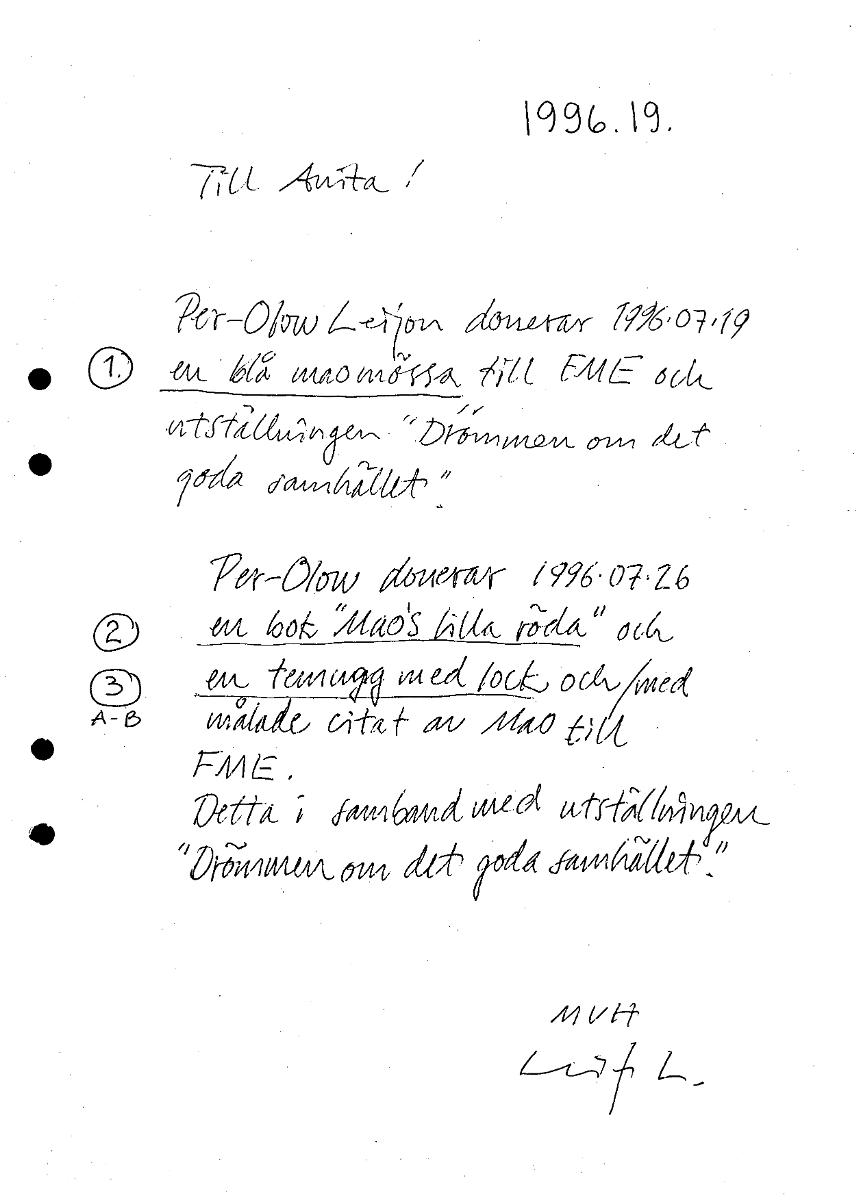 1996.19.
Till Anita!
Per-Olow Leijon donerar 1996.07.19
1. en blå maomössa till FME och
utställningen "Drömmen om det
goda samhället".
Per-Olow donerar 1996.07.26
2 en bok "Mao's lilla röda" och
3 en temugg med lock och/med
A-B målade citat av Mao till
FME.
Detta i samband med utställningen
"Drömmen om det goda samhället."
MVH
Leif L.